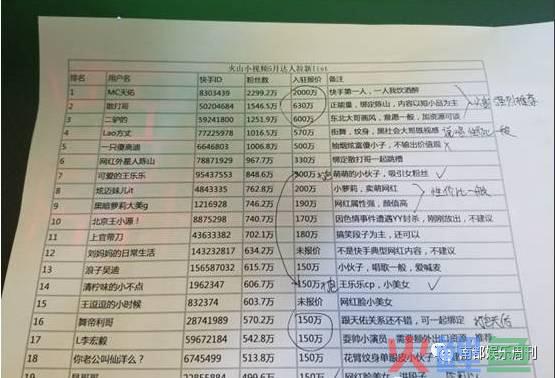 火山小视频5月达人拉新list
排名 用户名 快手ID 粉丝数 入驻报价 备注
1 MC天佑 8303439 2299.2万 2000万 快手第一人，一人我饮酒醉
2 散打哥 50204684 1546.5万 630万 正能量，绑定陈山，内容以短小品为主 强烈推荐
3 二驴的 59241800 1251.9万 600万 东北大哥画风，意愿一般，加资源可谈
4 Lao方丈 77225978 1016.5万 570万 街舞，纹身，黑社会大哥既视感 一般
5 一只傻高迪 6646803 1006.8万 500万 抽烟炫富傻小子，不输出价值观
6 网红外星人陈山 78871929 967.7万 330万 绑定散打哥一起跳槽
7 可爱的王乐乐 95437553 787.5万 300万 萌萌的小伙子，吸引女粉丝
8 炫迈妹儿 4843335 762.8万 200万 小萝莉，卖萌网红 性价比一般
9 黑暗萝莉大美g 1216928 746.2万 190万 网红属性强，颜值高
10 北京王小源！ 8875298 740.7万 170万 因色情事件遭遇YY封杀，刚刚放出，不建议
11 上官带刀 43633382 775.1万 180万 搞笑段子为主，还可以
12 刘妈妈的日常生活 143232817 634.2万 未报价 不是快手典型网红内容，不建议
13 浪子吴迪 156587032 615.7万 150万 小伙子，唱歌一般，爱喊麦
14 清柠味的小不点 1962347 606.7万 150万 王乐乐cp，小美女
15 王逗逗的小时候 832374 603.7万 未报价 网红脸小美女
16 舞帝利哥 28741989 570.2万 150万 跟天佑关系还不错，可一起绑定
17 L李宏毅 59672184 542.8万 150万 耍帅小演员，需要额外出口资源，推荐
18 你老公叫仙洋么？ 6745499 513.8万 150万 花臂纹身单眼皮小伙子
南都娱乐周刊